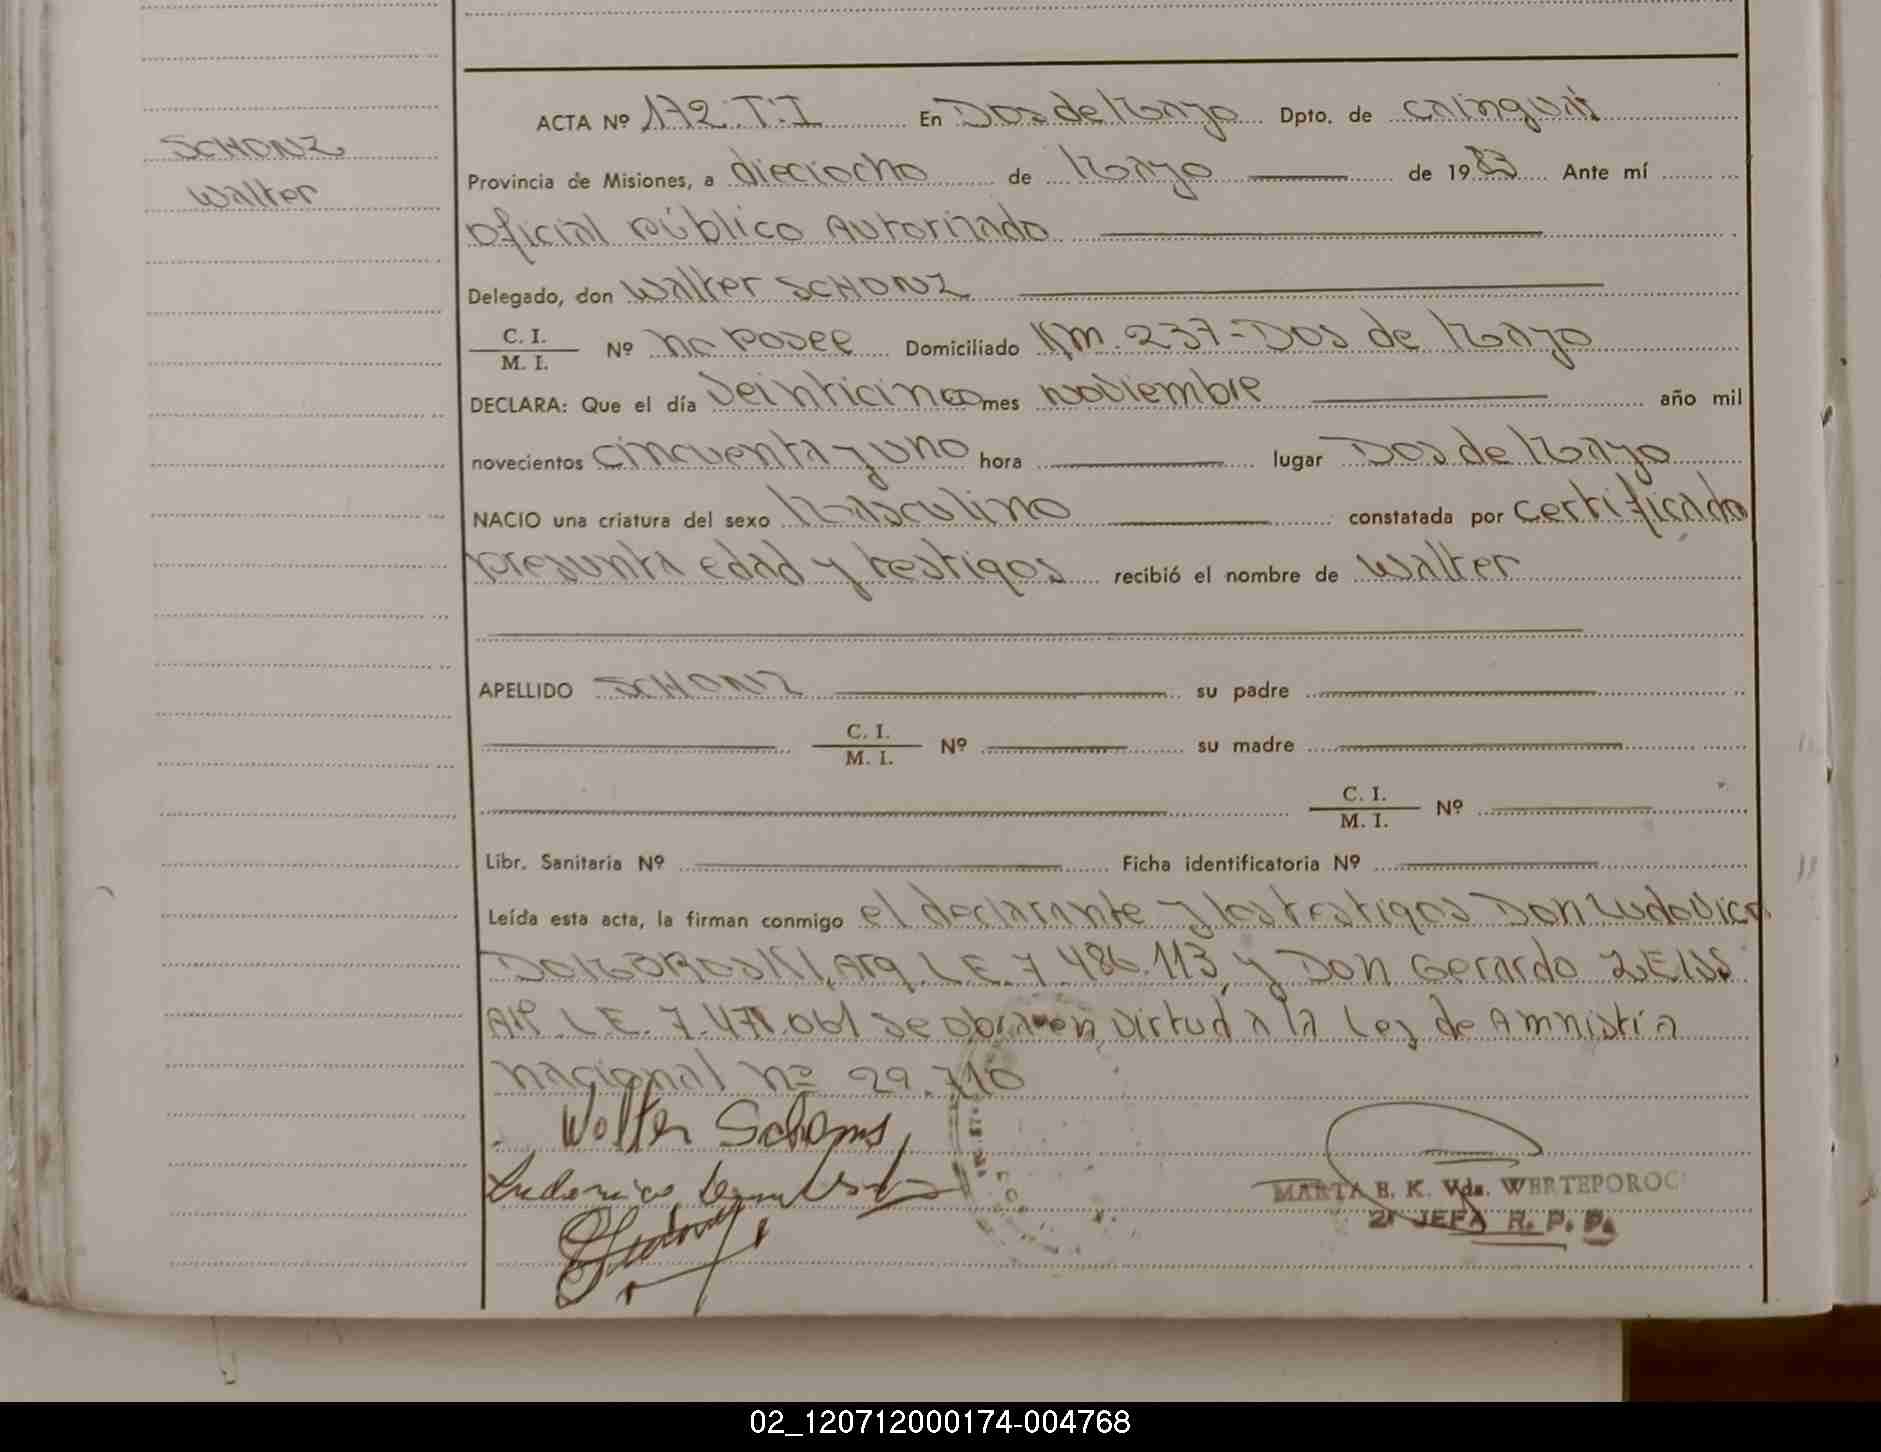 SCHONZ
Walter
ACTA Nº 172.T.I En Dos de Mayo Dpto. de Cainguás
Provincia de Misiones, a dieciocho de Mayo de 1983 Ante mí
Oficial Público Autorizado
Delegado, don Walter SCHONZ
C. I.
M. I. Nº no posee Domiciliado Km. 237-Dos de Mayo
DECLARA: Que el día veinticinco mes noviembre año mil
novecientos cincuenta y uno hora lugar Dos de Mayo
NACIO una criatura del sexo Masculino constatada por certificado
presunta edad y testigos recibió el nombre de Walter
APELLIDO SCHONZ su padre
C. I.
M. I. Nº su madre
C. I.
M. I. Nº
Libr. Sanitaria Nº Ficha identificatoria Nº
Leída esta acta, la firman conmigo el declarante y los testigos Don Ludovico
Arg. L.E. 7.486.113, y Don Gerardo ZEISS
L.E. 7.471.061 se obra en virtud a la Ley de Amnistía
nacional nº 29.710
Walter Schons
Ludovico
MARTA E. K. Vda. WERTEPOROC
2ª JEFA R. P. P.
02_120712000174-004768